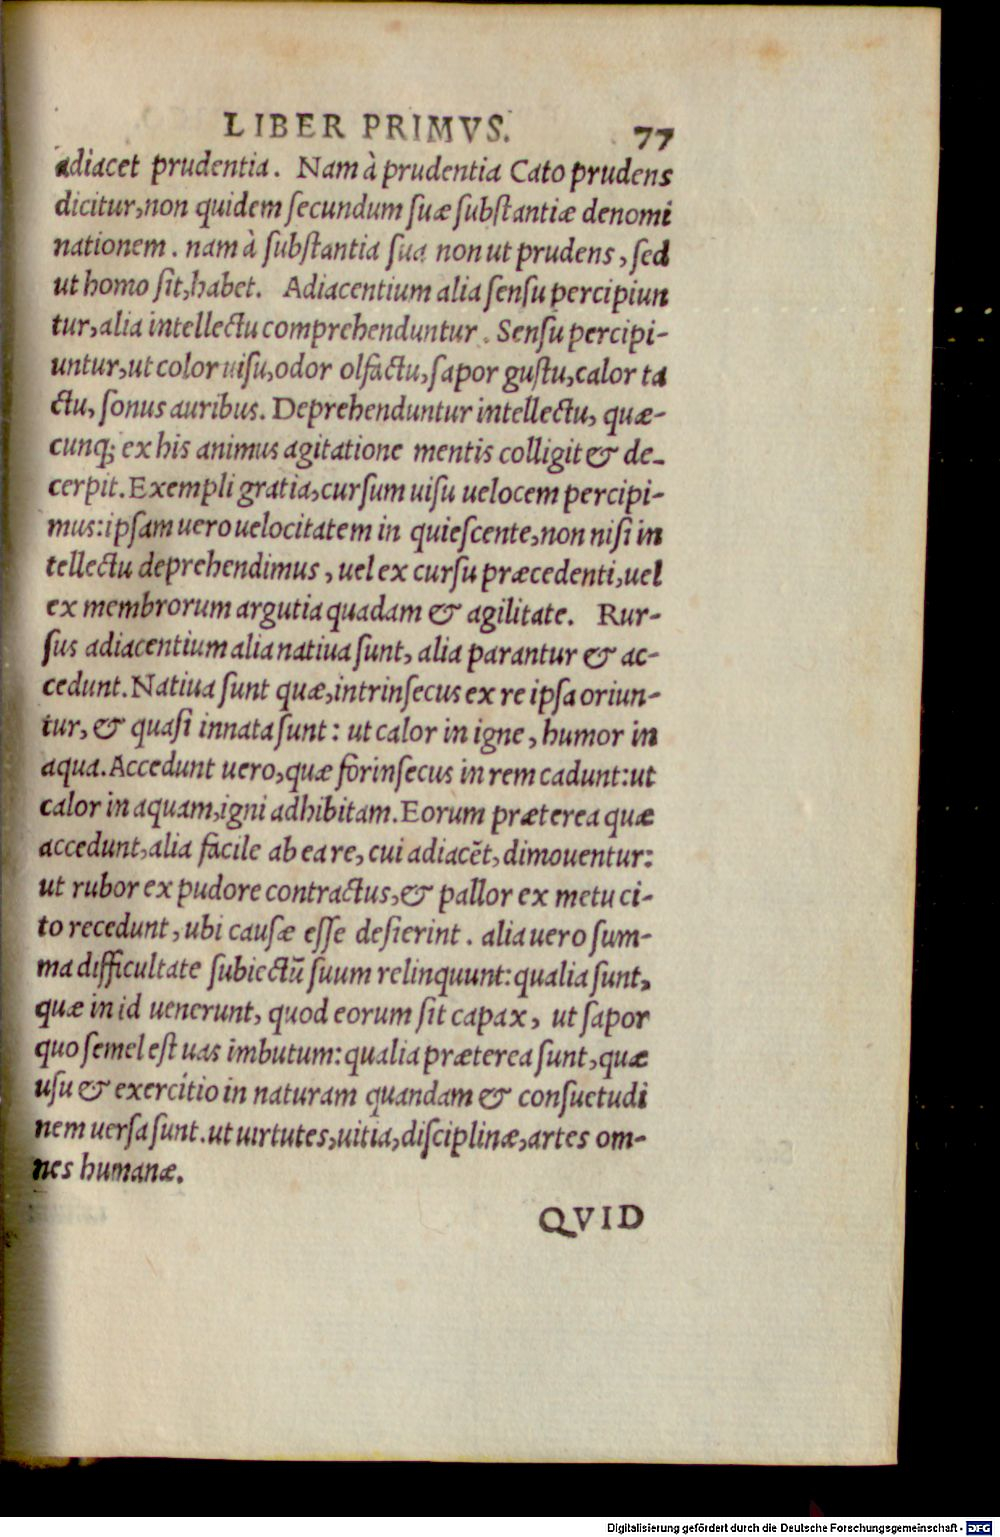 LIBER PRIMVS. 77
adiacet prudentia. Nam à prudentia Cato prudens
dicitur, non quidem ſecundum ſuæ ſubſtantiæ denomi
nationem. nam à ſubſtantia ſua non ut prudens, ſed
ut homo ſit, habet. Adiacentium alia ſenſu percipiun
tur, alia intellectu comprehenduntur. Senſu percipi-
untur, ut color uiſu, odor olfactu, ſapor guſtu, calor ta
ctu, ſonus auribus. Deprehenduntur intellectu, quæ-
cunq; ex his animus agitatione mentis colligit & de-
cerpit. Exempli gratia, curſum uiſu uelocem percipi-
mus: ipſam uero uelocitatem in quieſcente, non niſi in
tellectu deprehendimus, uel ex curſu præcedenti, uel
ex membrorum argutia quadam & agilitate. Rur-
ſus adiacentium alia natiua ſunt, alia parantur & ac-
cedunt. Natiua ſunt quæ, intrinſecus ex re ipſa oriun-
tur, & quaſi innata ſunt: ut calor in igne, humor in
aqua. Accedunt uero, quæ forinſecus in rem cadunt: ut
calor in aquam, igni adhibitam. Eorum præterea quæ
accedunt, alia facile ab ea re, cui adiacẽt, dimouentur:
ut rubor ex pudore contractus, & pallor ex metu ci-
to recedunt, ubi cauſæ eſſe deſierint. alia uero ſum-
ma difficultate ſubiectũ ſuum relinquunt: qualia ſunt,
quæ in id uenerunt, quod eorum ſit capax, ut ſapor
quo ſemel eſt uas imbutum: qualia præterea ſunt, quæ
uſu & exercitio in naturam quandam & conſuetudi
nem uerſa ſunt. ut uirtutes, uitia, diſciplinæ, artes om-
nes humanæ.
QVID
Digitalisierung gefördert durch die Deutsche Forschungsgemeinschaft - DFG